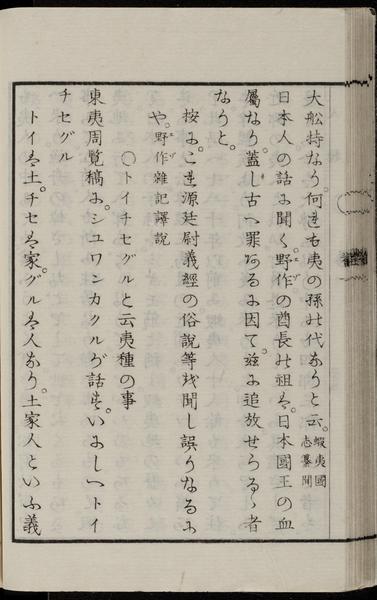 大舩持なり。何れも右夷の孫の代なりと云。蝦夷國志纂聞
日本人の話に聞く。野作の酋長の祖は。日本國王の血
屬なり。蓋し古へ罪あるに因て。茲に追放せらるゝ者
なりと。
按に。こは源廷尉義經の俗說等を聞し誤りなるに
や。野作雜記譯說
〇トイチセグルと云夷種の事
東夷周覽稿に。シユワンカクルが話す。いにしへトイ
チセグル
トイは土。チセは家。グルは人なり。土家人といふ義